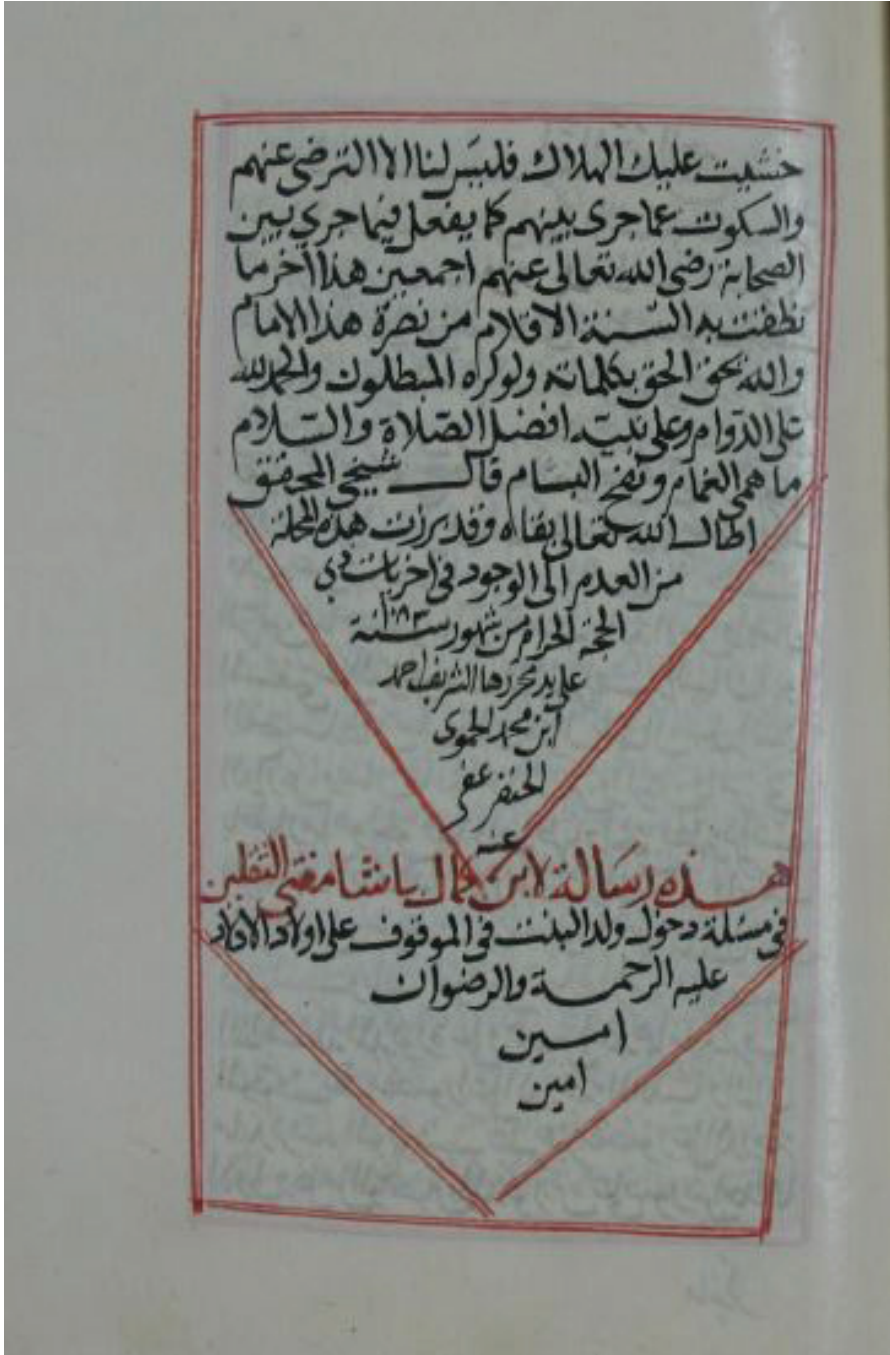 خشيت عليك الهلاك فليس لنا الا الترضى عنهم
والسكوت عما جرى بينهم كما يفعل فيما جرى بين
الصحابة رضى الله تعالى عنهم اجمعين هذا آخر ما
نطقت به السنة الاقلام من نصرة هذا الامام
والله يحق الحق بكلماته ولو كره المبطلون والحمد لله
على الدوام وعلى نبيه افضل الصلاة والسلام
ما همى الغمام ونفح البسام قال شيخي المحقق
اطال الله تعالى بقاه وقد برزت هذه المجلة
من العدم الى الوجود في اخريات ذي
الحجة الحرام من شهور سنة ١٠٨٣
على يد محررها الشريف احمد
ابن محمد الحموى
الحنفى عفى
عنه
هذه رسالة لابن كمال باشا مفتى الثقلين
في مسئلة دخول ولد البنت في الموقوف على اولاد الاولاد
عليه الرحمة والرضوان
امين
امين